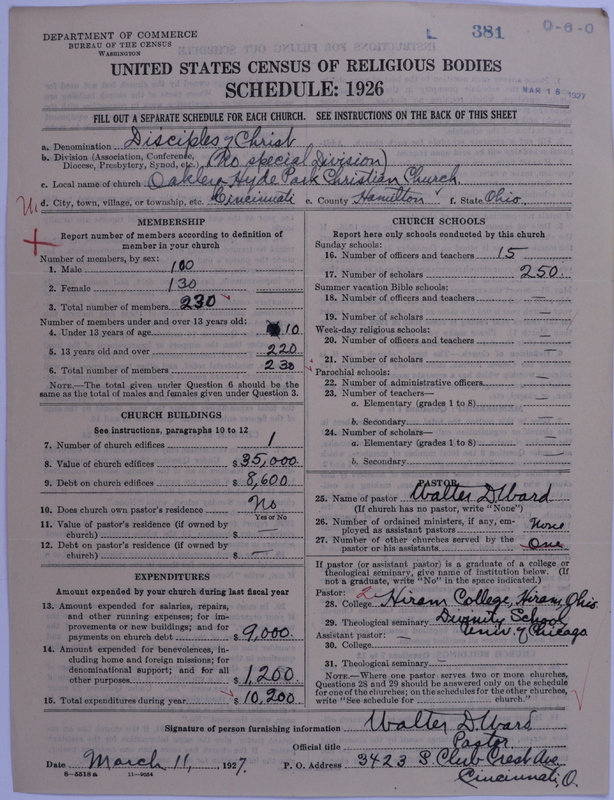 DEPARTMENT OF COMMERCE
BUREAU OF THE CENSUS
WASHINGTON
L 381 0-6-0
MAR 16 1927
UNITED STATES CENSUS OF RELIGIOUS BODIES
SCHEDULE: 1926
FILL OUT A SEPARATE SCHEDULE FOR EACH CHURCH. SEE INSTRUCTIONS ON THE BACK OF THIS SHEET
a. Denomination Disciples of Christ
b. Division (Association, Conference, Diocese, Presbytery, Synod, etc.) (No special Division)
c. Local name of church Oakley Hyde Park Christian Church
d. City, town, village, or township, etc. Cincinnati e. County Hamilton f. State Ohio.
MEMBERSHIP
Report number of members according to definition of
member in your church
Number of members, by sex:
1. Male 100
2. Female 130
3. Total number of members 230
Number of members under and over 13 years old:
4. Under 13 years of age 10
5. 13 years old and over 220
6. Total number of members 230
NOTE.—The total given under Question 6 should be
same as the total of males and females given under Question 3.
CHURCH BUILDINGS
See instructions, paragraphs 10 to 12
7. Number of church edifices 1
8. Value of church edifices $ 35,000.
9. Debt on church edifices $ 8,600
10. Does church own pastor's residence No
Yes or No
11. Value of pastor's residence (if owned by
church) $ —
12. Debt on pastor's residence (if owned by
church) $ —
EXPENDITURES
Amount expended by your church during last fiscal year
13. Amount expended for salaries, repairs,
and other running expenses; for im-
provements or new buildings; and for
payments on church debt $ 9,000.
14. Amount expended for benevolences, in-
cluding home and foreign missions; for
denominational support; and for all
other purposes $ 1,200
15. Total expenditures during year $ 10,200
CHURCH SCHOOLS
Report here only schools conducted by this church
Sunday schools:
16. Number of officers and teachers 15
17. Number of scholars 250.
Summer vacation Bible schools:
18. Number of officers and teachers —
19. Number of scholars —
Week-day religious schools:
20. Number of officers and teachers —
21. Number of scholars —
Parochial schools:
22. Number of administrative officers —
23. Number of teachers—
a. Elementary (grades 1 to 8) —
b. Secondary —
24. Number of scholars—
a. Elementary (grades 1 to 8) —
b. Secondary —
PASTOR
25. Name of pastor Walter D Ward
(If church has no pastor, write "None")
26. Number of ordained ministers, if any, em-
ployed as assistant pastors None
27. Number of other churches served by the
pastor or his assistants One
If pastor (or assistant pastor) is a graduate of a college or
theological seminary, give name of institution below. (If
not a graduate, write "No" in the space indicated.)
Pastor:
28. College Hiram College, Hiram, Ohio.
29. Theological seminary Divinity School Univ. of Chicago
Assistant pastor: —
30. College
31. Theological seminary —
NOTE.—Where one pastor serves two or more churches,
Questions 28 and 29 should be answered only on the schedule
for one of the churches; on the schedules for the other churches,
write "See schedule for church."
Signature of person furnishing information Walter D Ward
Official title Pastor
Date March 11, 1927. P. O. Address 3423 S. Club Crest Ave
Cincinnati, O.
8-5518a 11-9054